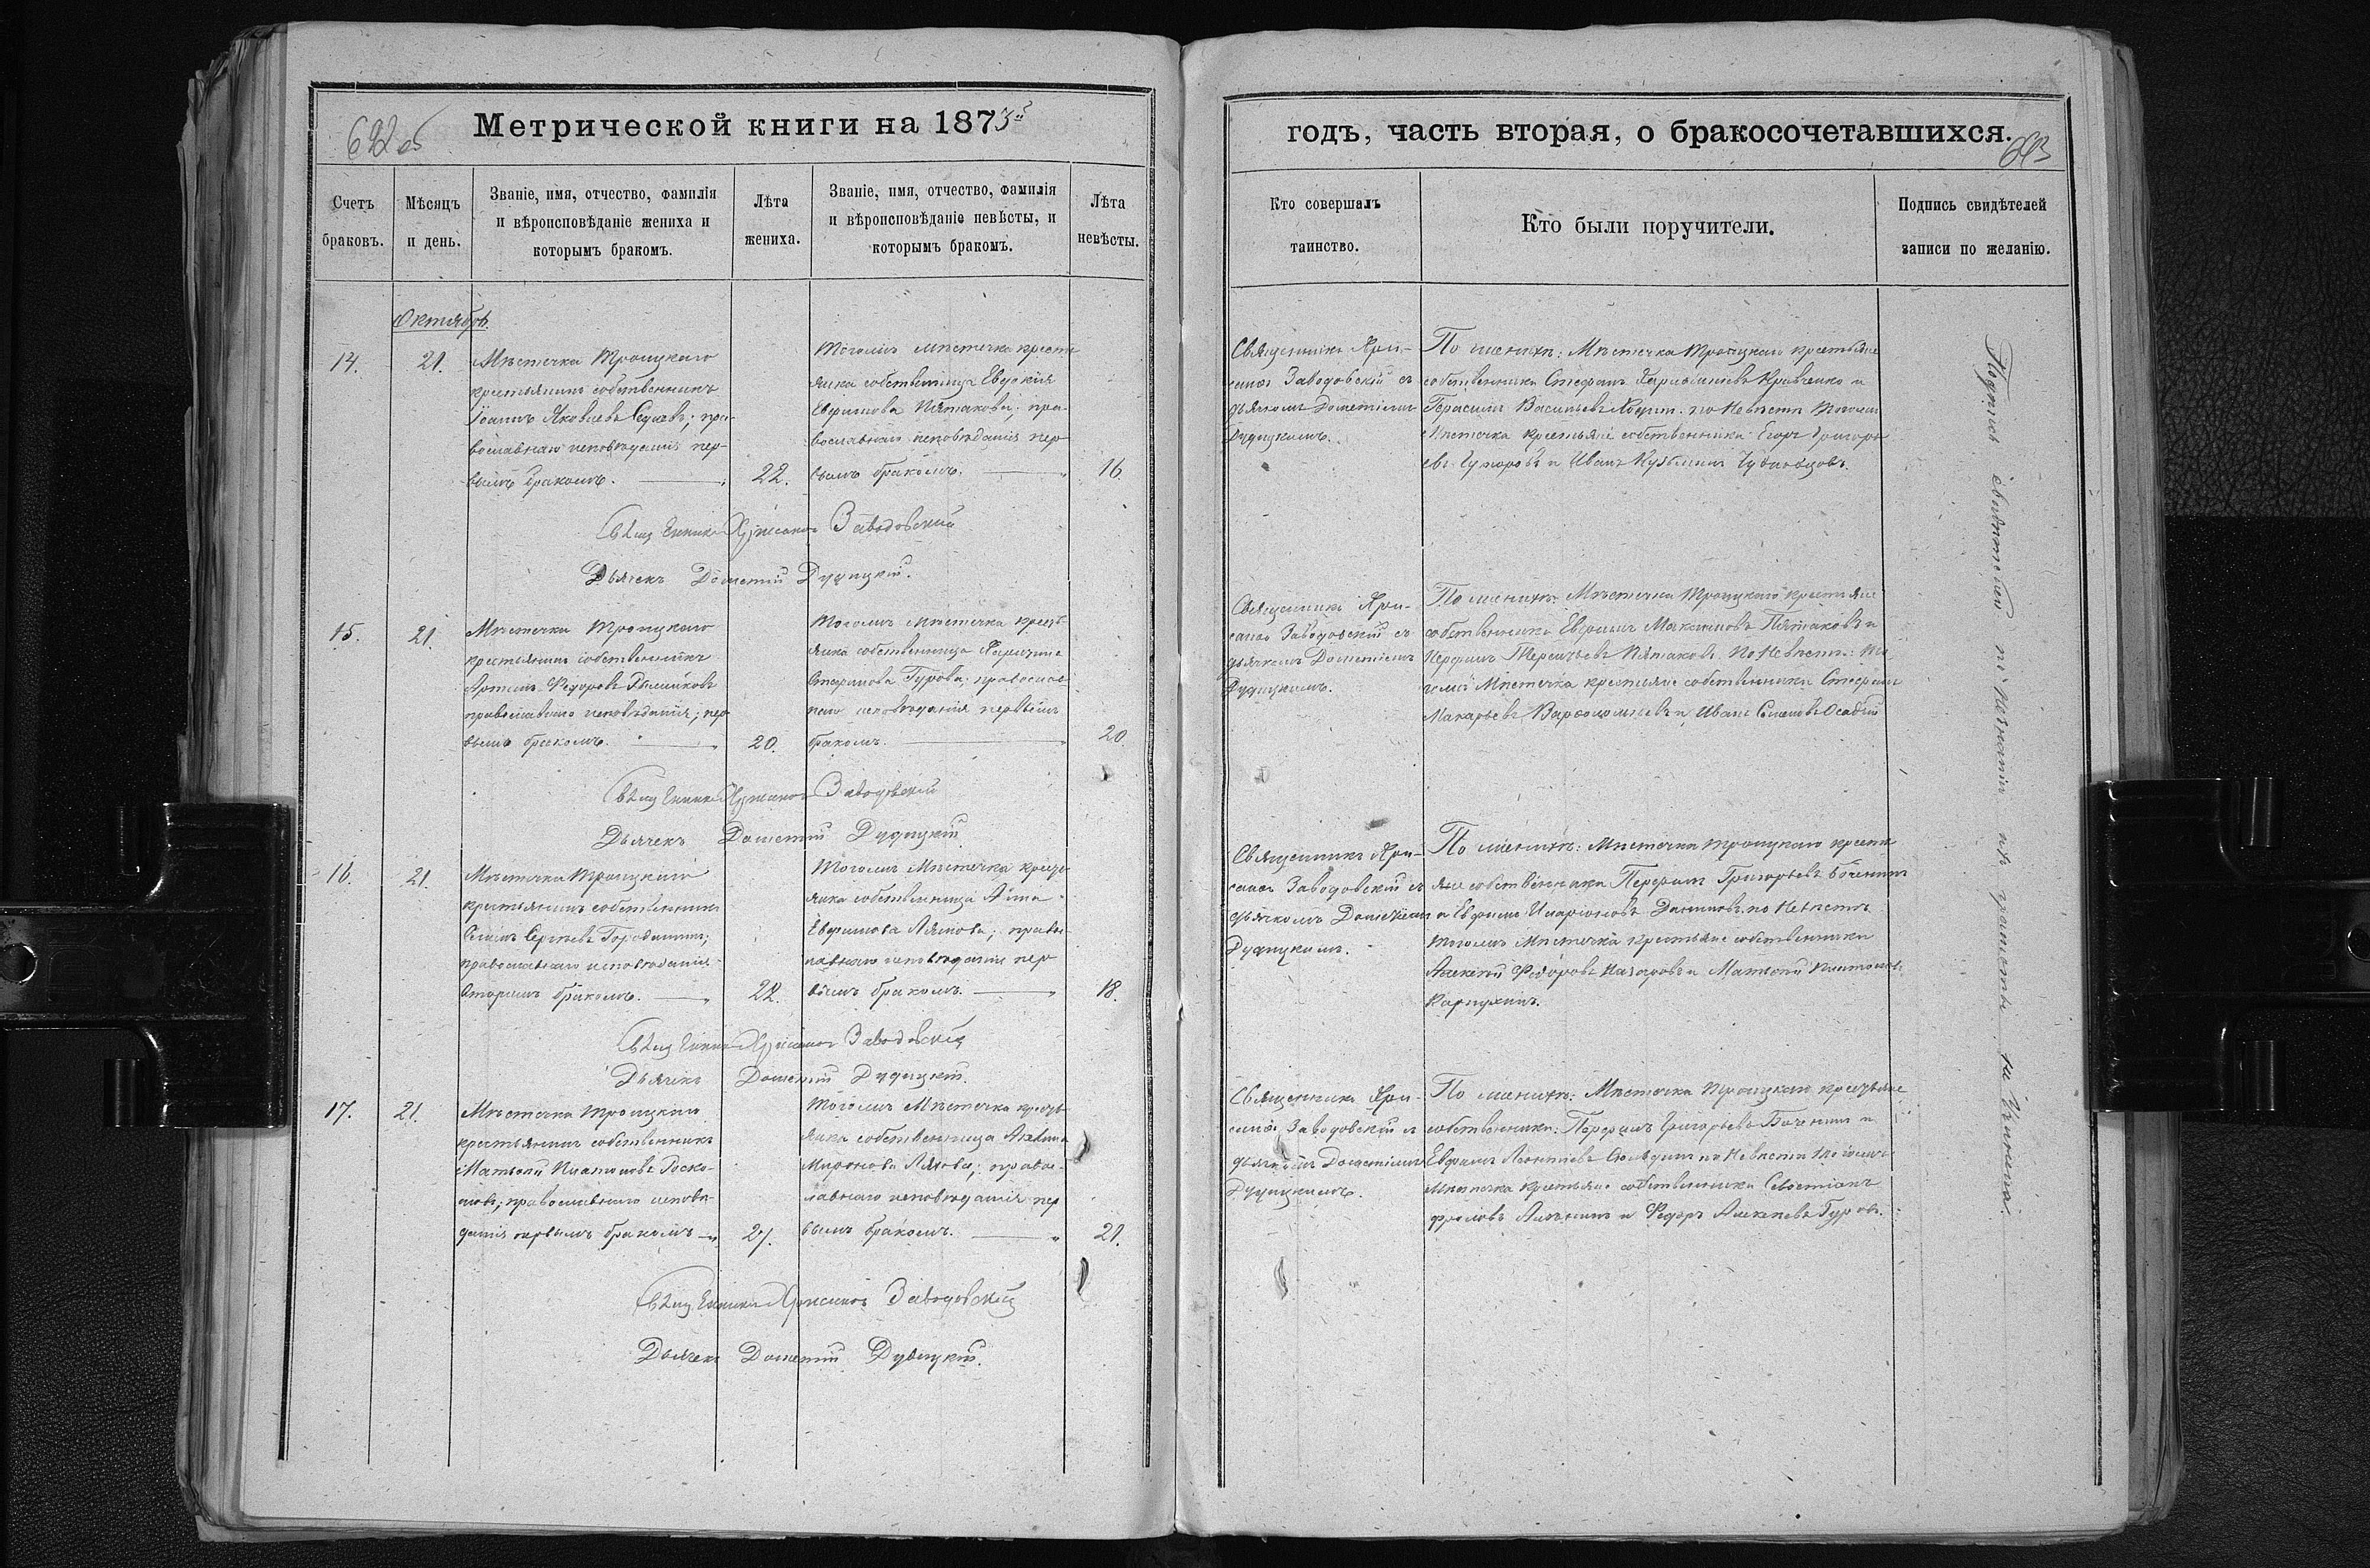 692 об
Метрической книги на 1873й
Счетъ браковъ.
Мѣсяцъ и день.
Званіе, имя, отчество, фамилія
и вѣроисповѣданіе жениха и
которымъ бракомъ.
Лѣта жениха.
Званіе, имя, отчество, фамилія
и вѣроисповѣданіе невѣсты, и
которымъ бракомъ.
Лѣта невѣсты.
Октябрь.
14.
21.
Мѣстечка Троицкаго
крестьянинъ собственникъ
Іоаннъ Яковлевъ Седневъ; пра-
вославнаго исповѣданія пер-
вымъ бракомъ.
22.
Тогожъ мѣстечка крестья
янка собственница Евдокія
Ефимова Пятакова; пра-
вославнаго исповѣданія пер-
вымъ бракомъ.
16.
Священникъ Хрисанѳъ Заводовскій
Дьячекъ Дометій Дудицкій.
15.
21.
Мѣстечка Троицкаго
крестьянинъ собственникъ
Артемъ Ѳедоровъ
православнаго исповѣданія; пер
вымъ бракомъ.
20.
Тогожъ мѣстечка кресть
янка собственница
Стефанова Гурова; православ
наго исповѣданія первымъ
бракомъ.
20.
Священникъ Хрисанѳъ Заводовскій
Дьячекъ Дометій Дудицкій.
16.
21.
Мѣстечка Троицкаго
крестьянинъ собственникъ
Сергѣевъ
православнаго исповѣданія
вторымъ бракомъ.
22.
Тогожъ мѣстечка кресть
янка собственница Анна
Ефимова Ляхова; правос
лавнаго исповѣданія пер
вымъ бракомъ.
18.
Священникъ Хрисанѳъ Заводовскій
Дьячекъ Дометій Дудицкій.
17.
21.
Мѣстечка Троицкаго
крестьянинъ собственникъ
Матвѣй Платоновъ
православнаго исповѣ-
данія первымъ бракомъ
27.
Тогожъ мѣстечка кресть
янка собственница
Миронова Ляхова; правос-
лавнаго исповѣданія пер
вымъ бракомъ.
21.
Священникъ Хрисанѳъ Заводовскій
Дьячекъ Дометій Дудицкій.
годъ, часть вторая, о бракосочетавшихся.
693
Кто совершалъ таинство.
Кто были поручители.
Подпись свидѣтелей записи по желанію.
Священникъ Хри-
санѳъ Заводовскій съ
дьячкомъ Дометіемъ
Дудицкимъ.
По женихѣ: Мѣстечка Троицкаго крестьяне
собственники Стефанъ Кравченко и
Герасимъ Васильевъ по невѣстѣ тогожъ
мѣстечка крестьяне собственники Егоръ Григорь
евъ и Иванъ Кузьминъ
Священникъ Хри-
санѳъ Заводовскій съ
дьячкомъ Дометіемъ
Дудицкимъ.
По женихѣ: Мѣстечка Троицкаго крестьяне
собственники Ефимъ Максимовъ Пятаковъ и
Терентьевъ Пятаковъ. По невѣстѣ: то
гожъ мѣстечка крестьяне собственники Стефанъ
Макарьевъ Варѳоломѣевъ и Иванъ Семеновъ
Священникъ Хри-
санѳъ Заводовскій съ
дьячкомъ Дометіемъ
Дудицкимъ.
По женихѣ: Мѣстечка Троицкаго кресть
яне собственники Порфирій Григорьевъ
и Ефимъ Иларіоновъ Даниловъ. по невѣстѣ
тогожъ мѣстечка крестьяне собственники
Алексѣй Ѳедоровъ Назаровъ и Матвѣй Платоновъ
Карпухинъ.
Священникъ Хри-
санѳъ Заводовскій съ
дьячкомъ Дометіемъ
Дудицкимъ.
По женихѣ: Мѣстечка Троицкаго крестьяне
собственники: Григорьевъ и
Ефимъ Леонтіевъ по невѣстѣ тогожъ
мѣстечка крестьяне собственники
Фроловъ и Ѳедоръ Алексѣевъ Гуровъ.
Подписи свидѣтелей по незнанію ихъ грамоты не учинено.